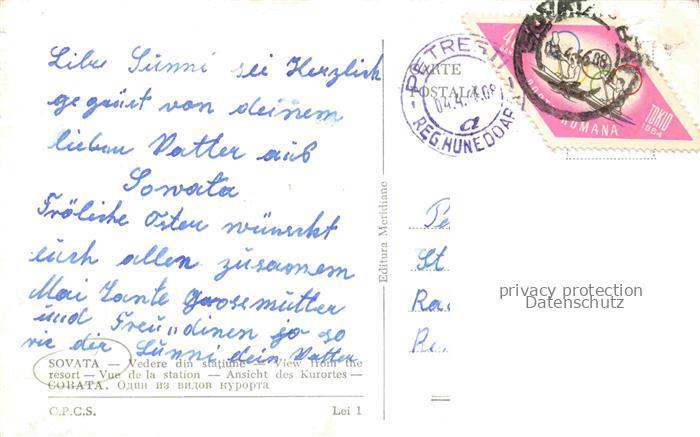 Libe Sünni sei Herzlich
gegrüst von deinem
lieben Vatter aus
Sowata
Fröliche Oster wünscht
euch allen zusammem
Mai Tante Grosemutter
und Freu„dinen so
wie dir Sünni dein Vatter
SOVATA — Vedere din stațiune — View from the
resort — Vue de la station — Ansicht des Kurortes —
СОВАТА. Один из видов курорта
C.P.C.S. Lei 1
Editura Meridiane
CARTE
POSTALA
PETRE
04.4.
a
REG.HUNEDOARA
ROMANA
TOKIO
1964
St
Ra
privacy protection
Datenschutz